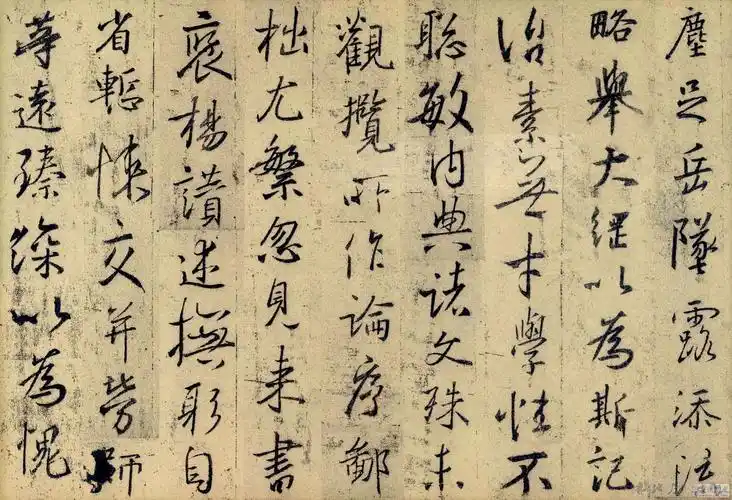 塵足岳墜露添流
略舉大綱以為斯記
治素無才學性不
聡敏內典諸文殊未
觀攬所作論序鄙
拙尤繁忽見來書
褒揚讃述撫躬自
省慙悚交并勞師
等遠臻深以為愧